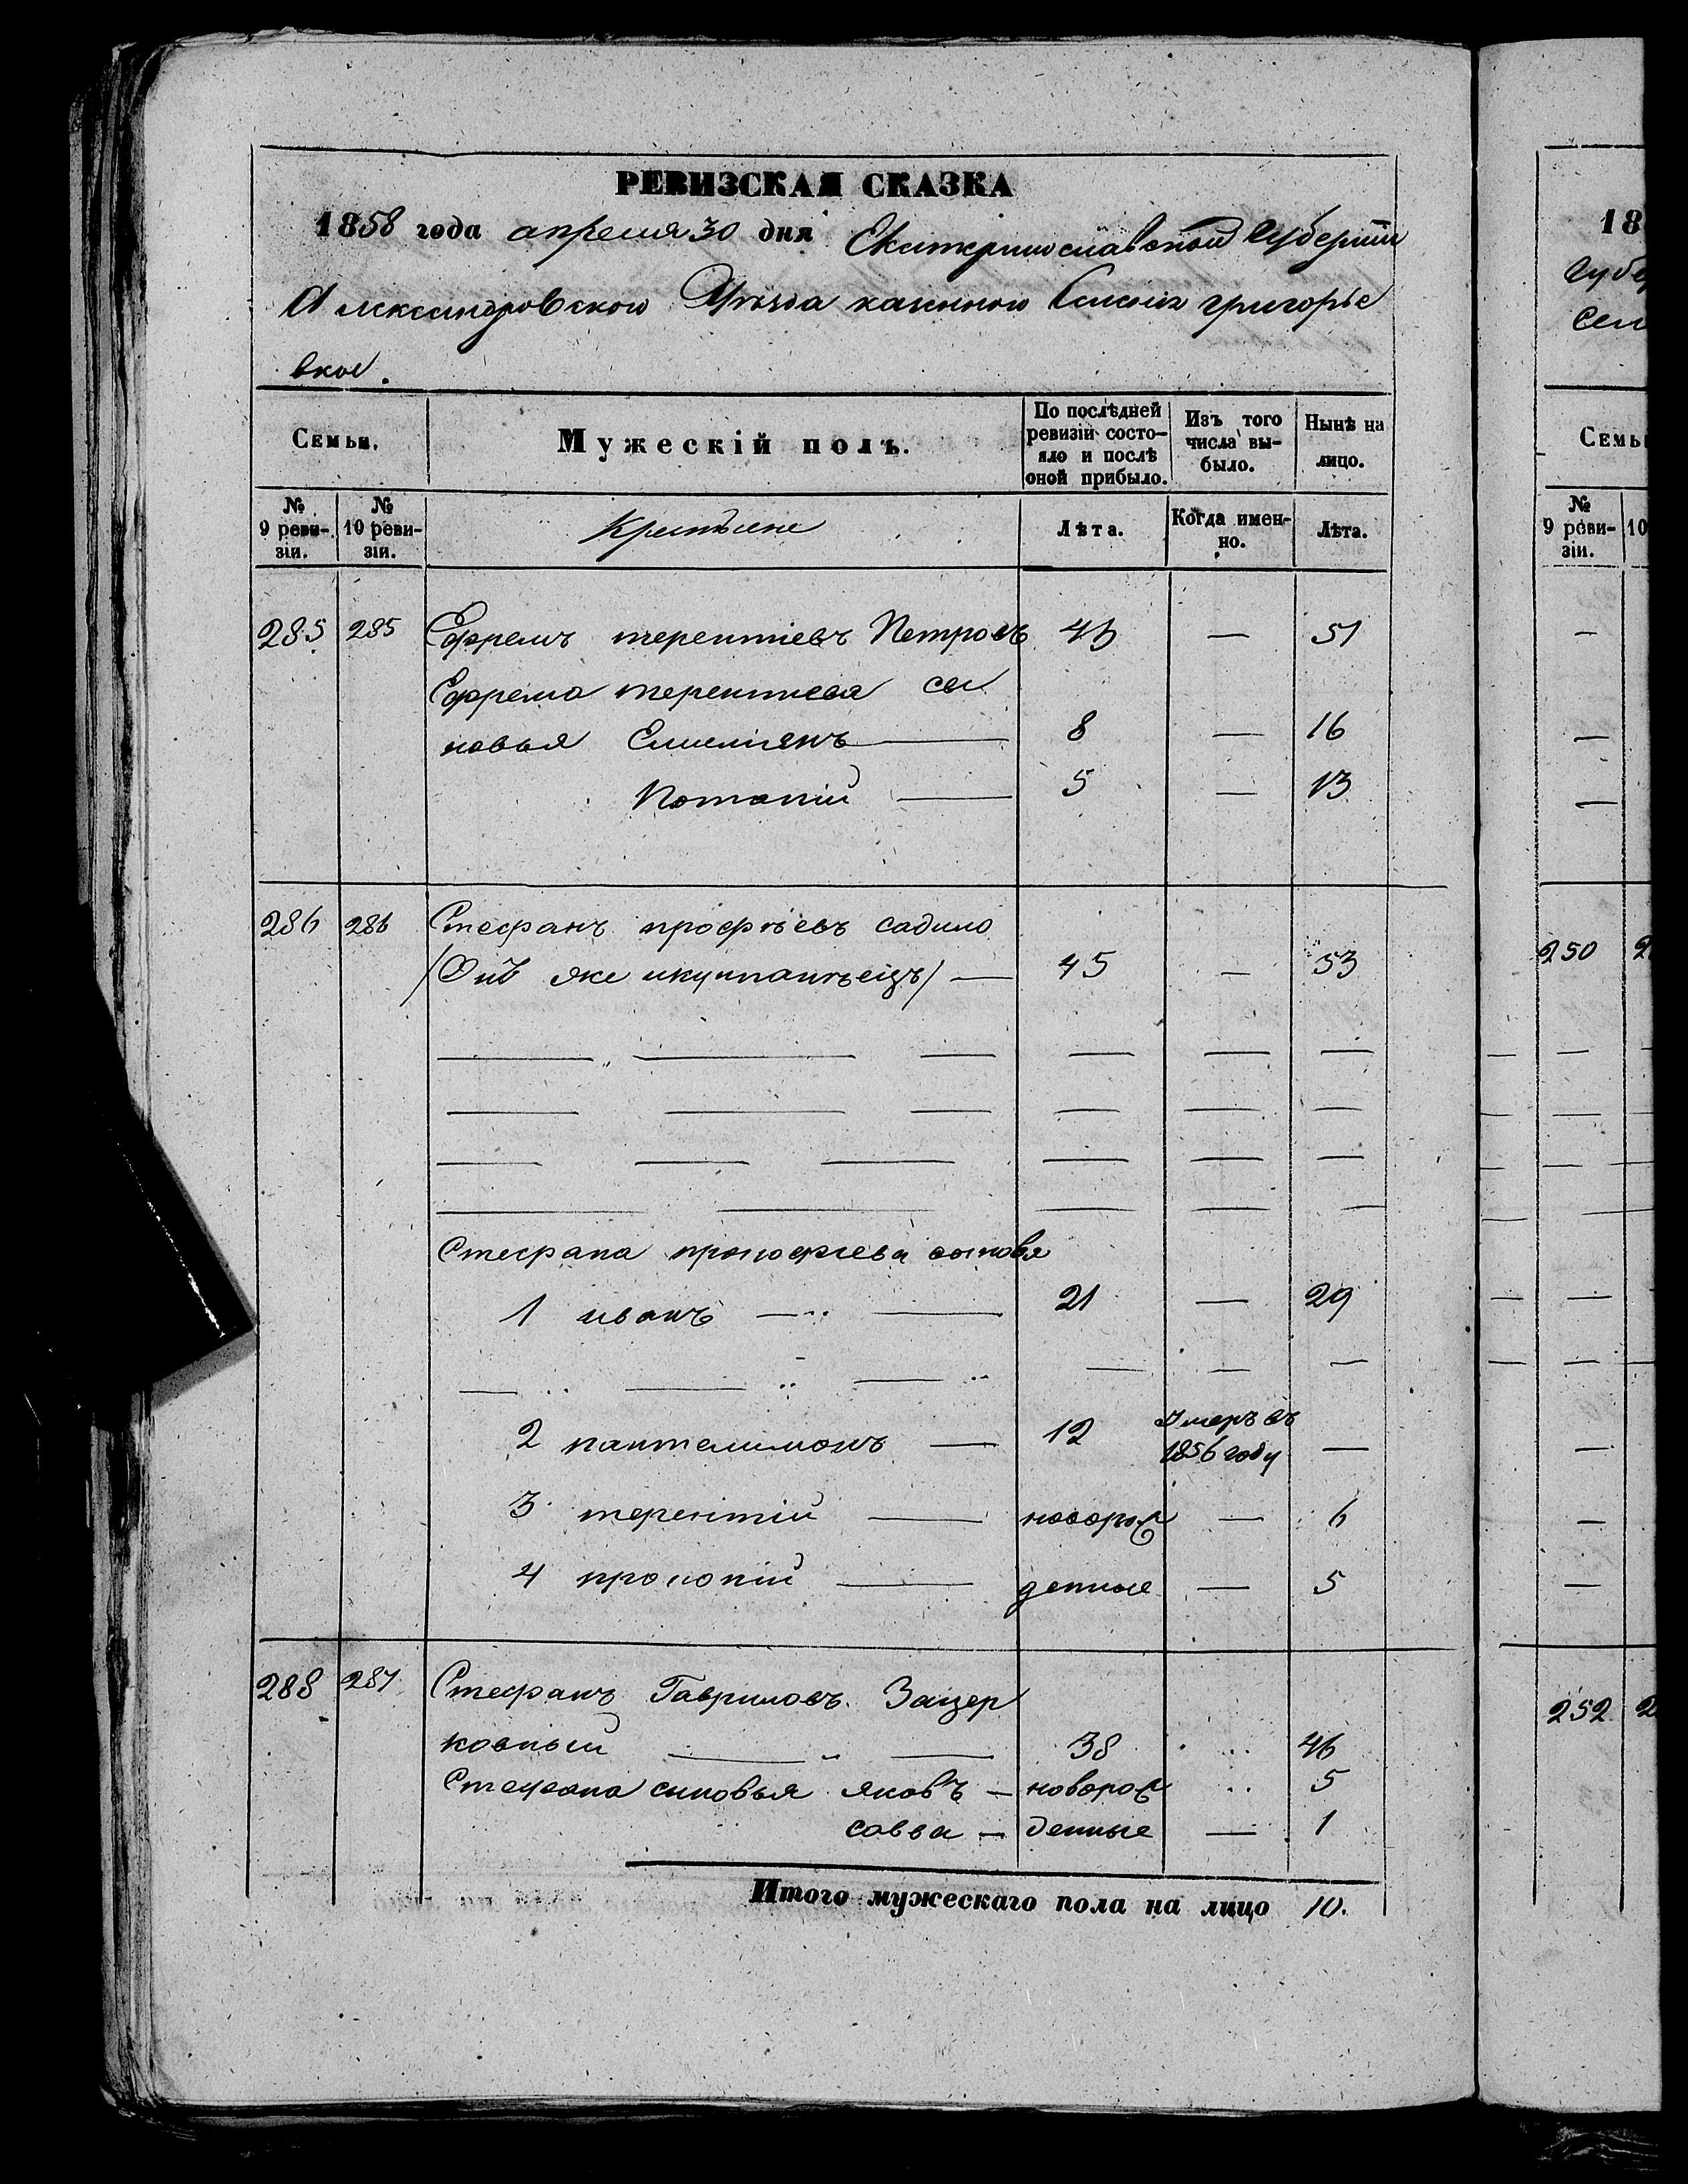 РЕВИЗСКАЯ СКАЗКА
1858 года апреля 30 дня Екатеринославской Губернии
Александровского Уѣзда казенного Селенія григорье
вкое.
Семьи.
Мужескій полъ.
По послѣдней ревизіи состо-яло и послѣ оной прибыло.
Изъ того числа вы-было.
Нынѣ на лицо.
№ 9 реви-зіи.
№ 10 реви-зіи.
Крестьяне
Лѣта.
Когда имен-но.
Лѣта.
285 285 Ефремъ терентіевъ Петровъ 43 — 51
Ефрема терентиева сы
новья Емельянъ — 8 — 16
Потапій — 5 — 13
286 286 Стефанъ профѣевъ садило
(Онъ же) — 45 — 53
Стефана прокофиева сыновя
1 иванъ — 21 — 29
2 пантелимонъ — 12 Умеръ въ 1856 году —
3 терентій — новорож — 6
4 прокопій — денные — 5
288 287 Стефанъ Гавриловъ Зацер
ковный — 38 46
Стефана сыновья яковъ — новорож 5
савва — денные — 1
Итого мужескаго пола на лицо 10.
18
губе
Сел
Семь
№ 9 реви-зіи.
10
250 2
252 2